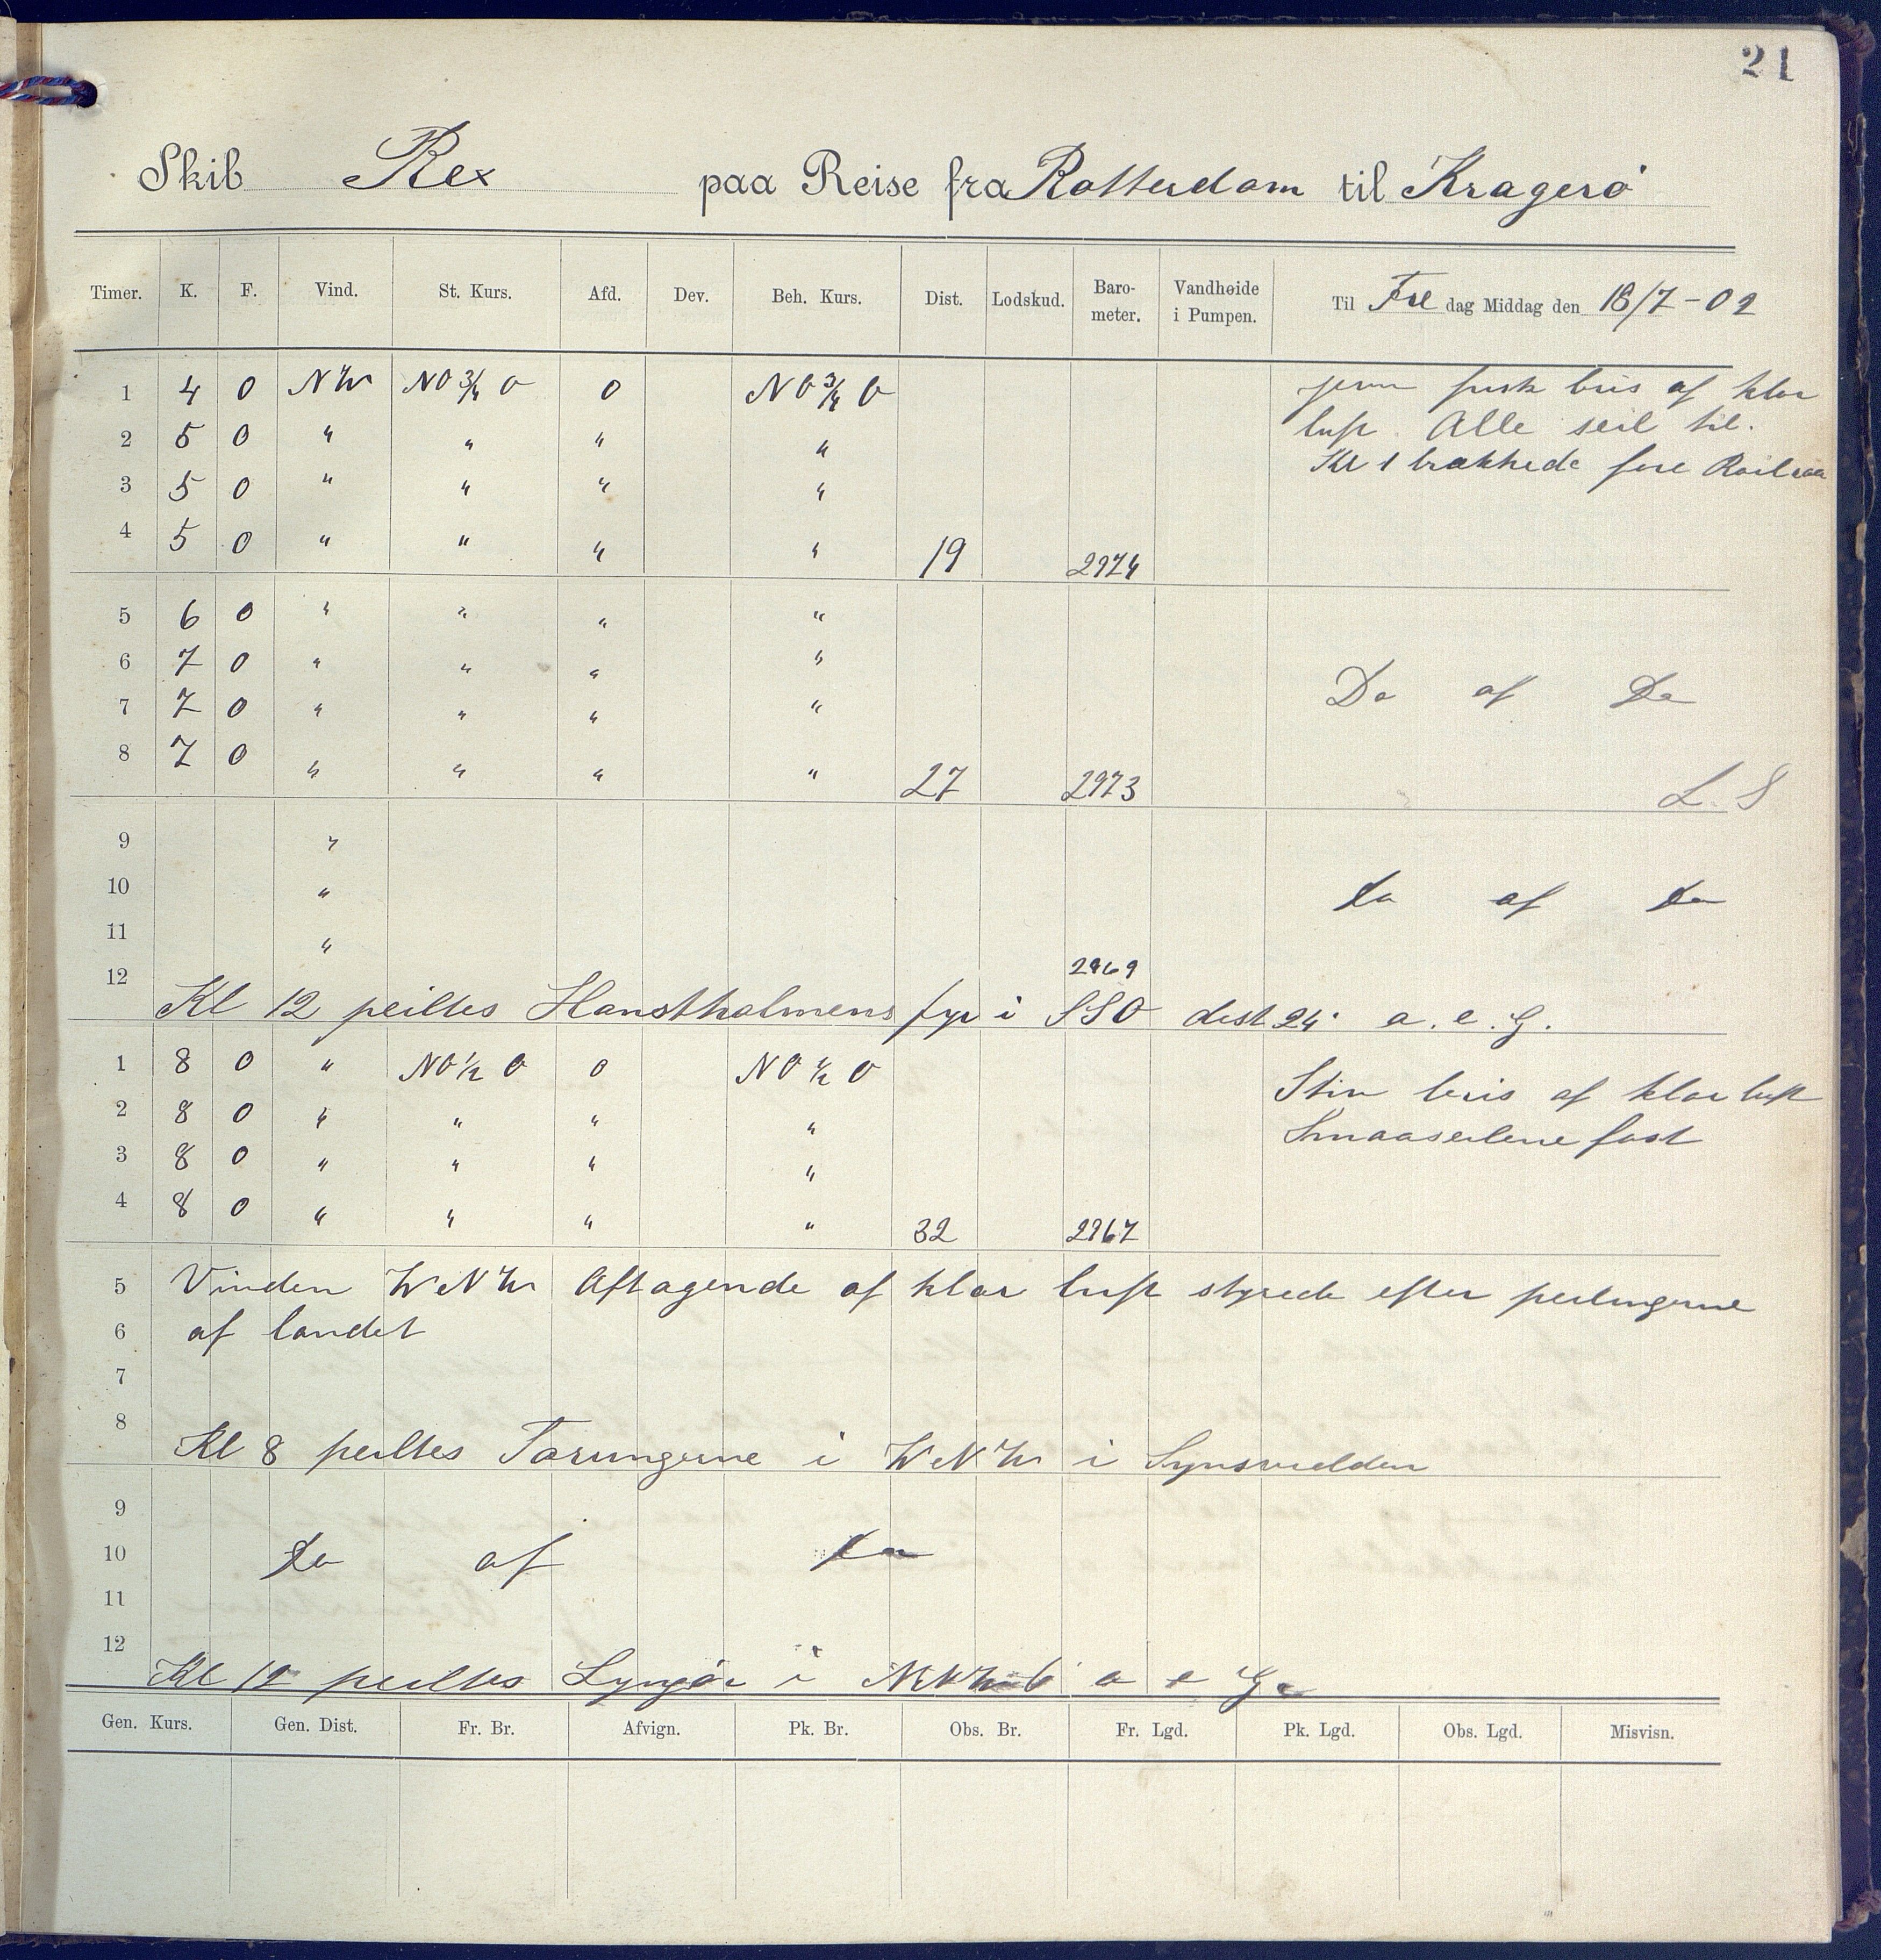 21
Skib Rex paa Reise fra Rotterdam til Kragerö
Timer. K. F. Vind. St. Kurs. Afd. Dev. Beh. Kurs. Dist. Lodskud. Baro-meter. Vandhøide i Pumpen. Til Fre dag Middag den 18/7-02
1 4 0 NW NO 3/4 O 0 NO 3/4 O jevn frisk bris af klar
2 5 0 " " " " luft. Alle seil til.
3 5 0 " " " " Kl 1 brækkede fore
4 5 0 " " " " 19 2974
5 6 0 " " " "
6 7 0 " " " " Do af Do
7 7 0 " " " "
8 7 0 " " " " 27 2973 L. S
9 "
10 " Do af Do
11 "
12 2969
Kl 12 peiltes Hanstholmens fyr i SSO dist 24' a. e. G.
1 8 0 " NO 1/2 O 0 NO 1/2 O Stiv bris af klar luft
2 8 0 " " " " Smaaseilene fast
3 8 0 " " " "
4 8 0 " " " " 32 2967
5 Vinden WNW Aftagende af klar luft styrede efter peilingerne
6 af landet
7
8 Kl 8 peiltes Torungerne i WNW i Synsvidden
9
10 Do af Do
11
12 Kl 12 peiltes Lyngör i a e G.
Gen. Kurs. Gen. Dist. Fr. Br. Afvign. Pk. Br. Obs. Br. Fr. Lgd. Pk. Lgd. Obs. Lgd. Misvisn.